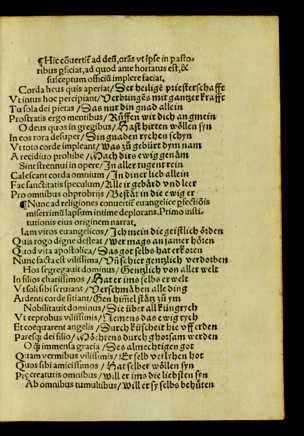 ¶Hic cōuertit ad deū, orās vt ipse in pasto
ribus pficiat, ad quod ante hortatus est, &
susceptum officiū implere faciat.
Corda heus quis aperiat/ Der heiligē priesterschafft
Vt intus hoc percipiant/ Verdingēs mit gantzer krafft
Tu sola dei pietas/ Das nur din gnad allein
Prostratis ergo mentibus/ Rüffen wir dich an gmein
O deus quos in gregibus/ Hast hirten wöllen syn
In eos rora desuper/ Din gnaden rychen schyn
Vt toto corde impleant/ Was zu gebürt dym nam
A recidiuo prohibe/ Mach diis ewig genām
Sint strennui in opere/ In aller tugent rein
Calescant corda omnium/ In diner lieb allein
Fac sanctitatis speculum/ Alle ir gebärd vnd leer
Pro omnibus obprobriis/ Bestät in die ewig er
¶Nunc ad religiones conuertit euangelice pfectiōis
miserrimū lapsum intime deplorans. Primo insti
tutionis eius originem narrat,
Iam viros euangelicos/ Ich mein die geistlich örden
Quis rogo digne defleat/ Wer mags an jamer hören
Quod vita apostolica/ Das got selbs hat erkoren
Nunc facta est vilissima/ Vnd schier gentzlich verdorben
Hos segregauit dominus/ Gentzlich von aller welt
In filios charissimos/ Hat er ims selbs er welt
Vt soli sibi seruiant/ Verschmāhen alle ding
Ardenti corde sitiant/ Gen himel stätz zu ym
Nobilitauit dominus/ Sie über all küngrych
Vt reprobus vilissimis/ Nement das ewig rych
Et coequarent angelis/ Durch küscheit hie vff erden
Paresq; dei filio/ Möchtens durch ghorsam werden
O q̄ immensa gracia/ Des almechtigen got
Quam vermibus vilissimis/ Er selb verlyhen hot
Quos sibi amicissimos/ Hat selber wöllen syn
Pre creatis omnibus/ Will er ims die liebsten syn
Ab omnibus tumultibus/ Will er sy selbs behüten